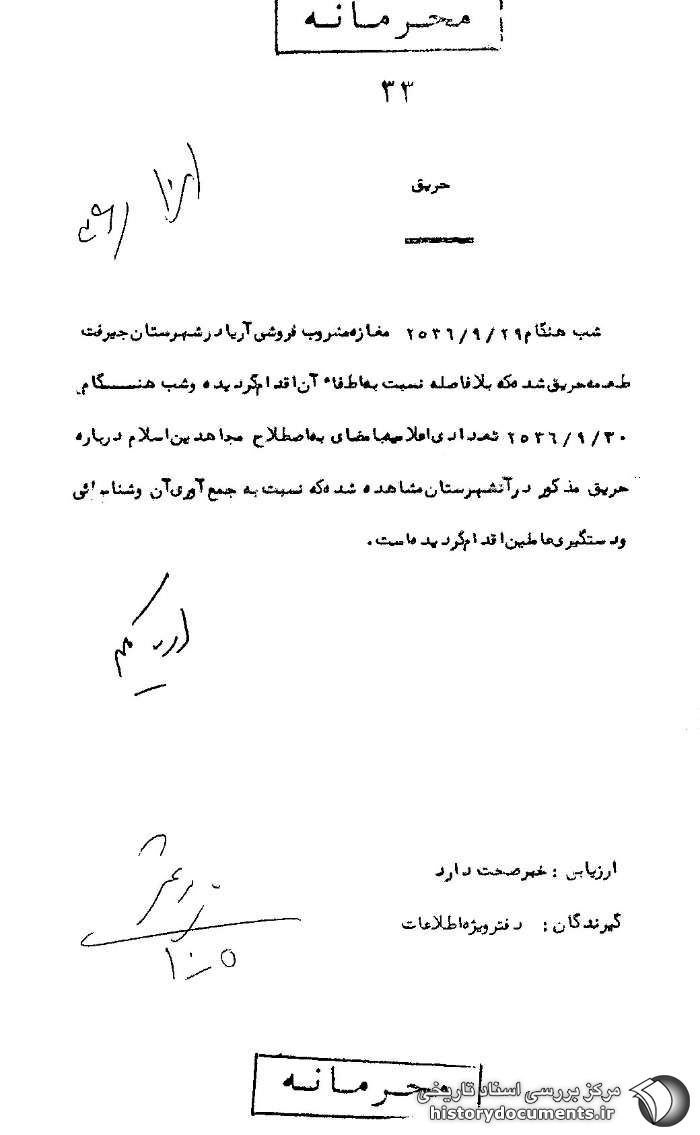 محرمانه
۳۳
حریق
شب هنگام ۲۵۳۶/۹/۲۹ مغازه مشروب فروشی آریا در شهرستان جیرفت
طعمه حریق شده که بلافاصله نسبت به اطفاء آن اقدام گردیده و شب هنگام
۲۵۳۶/۹/۳۰ تعدادی اعلامیه با امضای به اصطلاح مجاهدین اسلام درباره
حریق مذکور در آن شهرستان مشاهده شده که نسبت به جمع آوری آن و شناسائی
و دستگیری عاملین اقدام گردیده است.
ارزیابی : خبر صحت دارد
گیرندگان : دفتر ویژه اطلاعات
۱۰/۵
محرمانه
مرکز بررسی اسناد تاریخی
historydocuments.ir